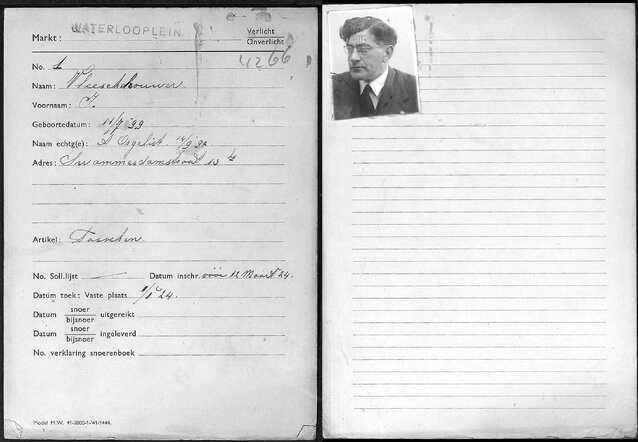 WATERLOOPLEIN
Markt: Verlicht
Onverlicht
4266
No. 1
Naam: Vleeschdrouwer
Voornaam: I.
Geboortedatum: 11/7 '99
Naam echtg(e):
Adres: Swammerdamstraat 13
Artikel:
No. Soll.lijst — Datum inschr. vóór 12 Maart 24.
Datum toek: Vaste plaats 24.
Datum snoer bijsnoer uitgereikt
Datum snoer bijsnoer ingeleverd
No. verklaring snoerenboek
Model M.W. 41-2000-1-VI-1444.